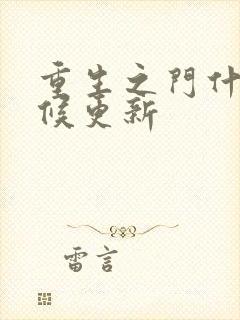 重生之門什
候更新
雷言